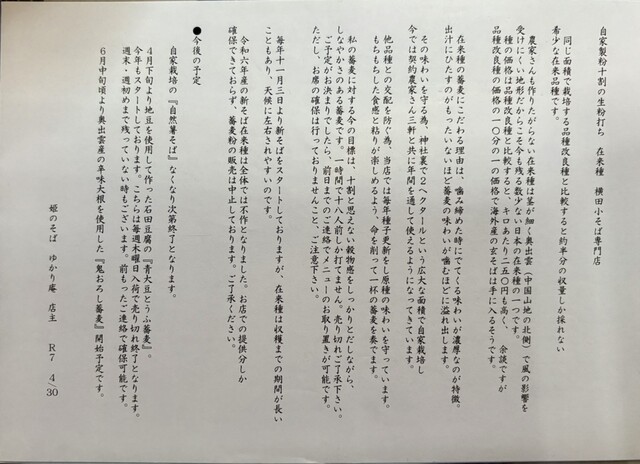 自家製粉十割の生粉打ち　在来種　横田小そば専門店
同じ面積で栽培する品種改良種と比較すると約半分の収量しか採れない
希少な在来品種です。
農家さんも作りたがらない在来種は茎が細く奥出雲（中国山地の北側）で風の影響を
受けにくい地形だからこそ今も残る数少ない日本の在来種の一つです。
種の価格は品種改良種と比較すると、キロあたり二五〇円も高く、余談ですが
品種改良種の価格の一〇分の一の価格で海外産の玄そばは手に入るそうです。
在来種の蕎麦にこだわる理由は、噛み締めた時にでてくる味わいが濃厚なのが特徴。
出汁にひたすのがもったいないほど蕎麦の味わいが噛むほどに溢れ出します。
その味わいを守る為、神社裏で２ヘクタールという広大な面積で自家栽培し
今では契約農家さん三軒と共に年間を通して使えるようになってきています。
他品種との交配を防ぐ為、当店では毎年種子更新をし原種の味わいを守っています。
もちもちした食感と粘りが楽しめるよう、命を削って一杯の蕎麦を奏でます。
私の蕎麦に対する今の目標は、十割と思えない穀物感をしっかりとだしながら、
しなやかさのある蕎麦です。一時間で十八人前しか打てません。売り切れご了承下さい。
ご予定がお決まりでしたら、前日までのご連絡でメニューのお取り置きが可能です。
ただし、お席の確保は行っておりませんこと、ご注意下さい。
毎年十一月三日より新そばをスタートしておりますが、在来種は収穫までの期間が長い
こともあり、天候に左右されやすいのです。
令和六年産の新そば在来種は全体では不作となりました。お店での提供分しか
確保できておらず、蕎麦粉の販売は中止しております。ご了承ください。
●今後の予定
自家栽培の『自然薯そば』なくなり次第終了となります。
４月下旬より地豆を使用して作った石田豆腐の『青大豆とうふ蕎麦』。
今年もスタートしております。こちらは毎週木曜日入荷で売り切れ終了となります。
週末・週初めまで残っていない時もございます。前もったご連絡で確保可能です。
６月中旬頃より奥出雲産の辛味大根を使用した『鬼おろし蕎麦』開始予定です。
姫のそば　ゆかり庵　店主　Ｒ７　４/30